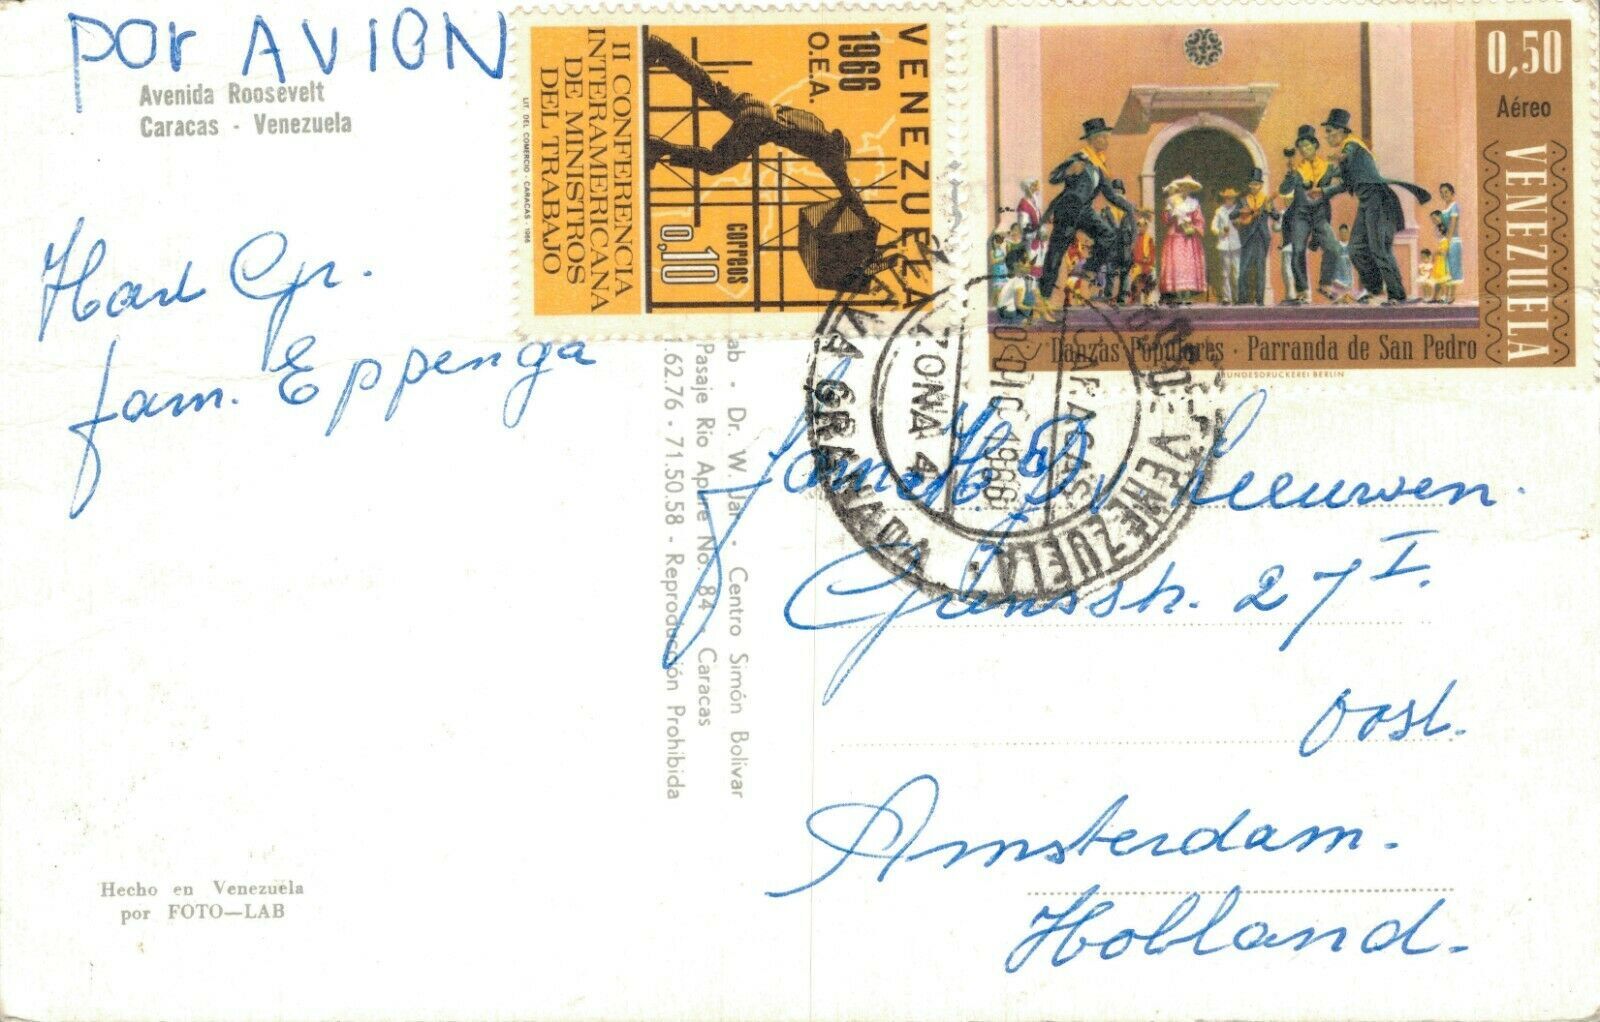 por AVION
Avenida Roosevelt
Caracas - Venezuela
Hart Gr.
fam. Eppenga
Hecho en Venezuela
por FOTO—LAB
VENEZUELA
1966
O.E.A.
correos
0,10
II CONFERENCIA
INTERAMERICANA
DE MINISTROS
DEL TRABAJO
LIT. DEL COMERCIO - CARACAS - 1966
0,50
Aéreo
VENEZUELA
Danzas Populares · Parranda de San Pedro
BUNDESDRUCKEREI BERLIN
CARACAS
DIC 1966
ZONA 4
VENEZUELA
GRANADA
ab - Dr. W. Jar - Centro Simón Bolívar
Pasaje Río Apure No. 84 - Caracas
1.62.76 - 71.50.58 - Reproducción Prohibida
fam. H. D. v. Leeuwen.
27 I.
Oost.
Amsterdam.
Holland.